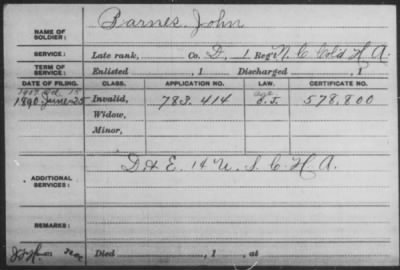 NAME OF SOLDIER: Barnes, John
SERVICE: Late rank, Co. D, 1 Reg't N. C. Col'd H A.
TERM OF SERVICE: Enlisted , 1 Discharged , 1
DATE OF FILING. CLASS. APPLICATION NO. LAW. CERTIFICATE NO.
1890 June 25 Invalid, 783.414 578.800
Widow,
Minor,
ADDITIONAL SERVICES: D & E. 14 U. S. C. H. A.
REMARKS:
Died , 1 , at